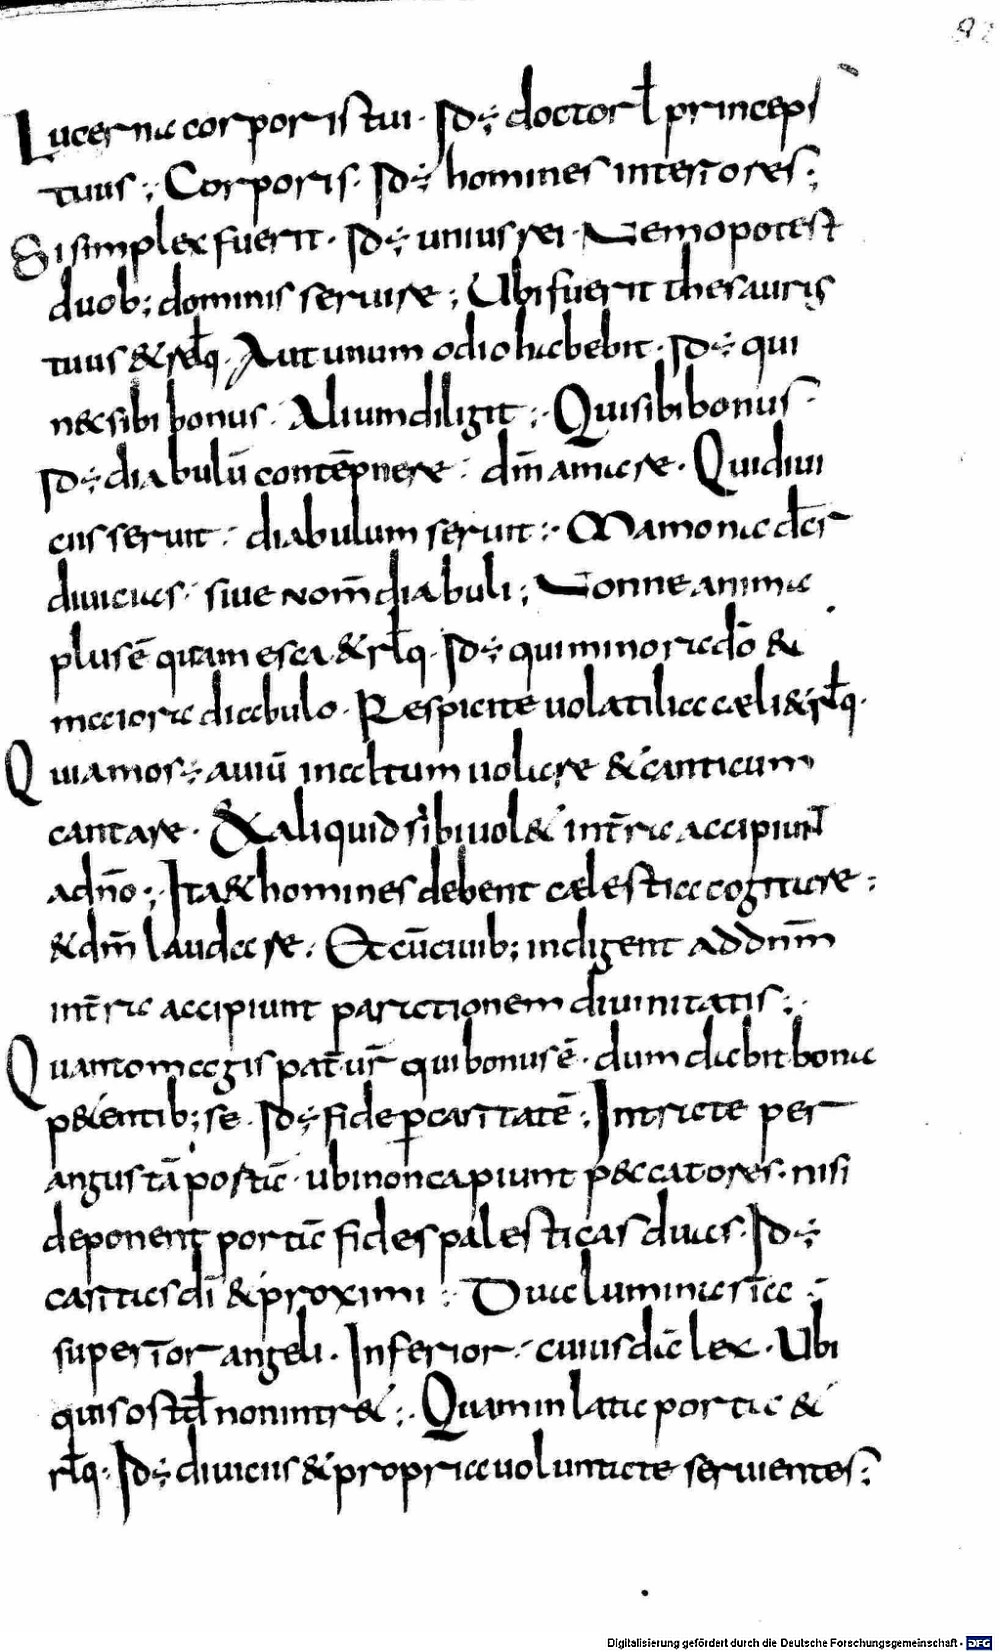 82
Lucerna corporis tui · Id÷ doctor ł princeps
tuus ;· Corporis · Id÷ homines interiores ;
Si simplex fuerit · Id÷ unius rei · Nemo potest
duob; dominis seruire ; Ubi fuerit thesauris
tuus & rełq · Aut unum odio habebit · Id÷ qui
nec sibi bonus · Alium diligit ;· Qui sibi bonus
Id÷ diabulū contēpnere · dm̄ amare · Qui diui
ciis seruit · diabulum seruit ;· Mamona dr̄
diuicias · siue nom̄ diabuli ; Nonne anima
plus ē quam esca & rełq · Id÷ qui minora dō &
maiora diabulo · Respicite uolatilia cæli & rełq ·
Quia mos ÷ auiū in altum uolare & canticum
cantare · & aliquid sibi uol& int̄ra accipiunt
ad n̄o ;· Ita & homines debent cælestia cogitare ;
& dm̄ laudare · Et cū cuib; indigent ad dnm̄
int̄ra accipiunt parationem diuinitatis ;·
Quanto magis pat̄ ur̄ qui bonus ē · dum dabit bona
p&entib; se · Id÷ fide p caritatē ; Intrate per
angustā portā · ubi non capiunt peccatores · nisi
deponent portā fides palesticas diuas · Id÷
caritas dī & proximi ;· Due luminaria ;
superior angeli · Inferior · cuius dic̄ lex · Ubi
quis ost nonintr& ;· Quam in lata porta &
rełq · Id÷ diuiciis & propria uoluntate seruientes ;
Digitalisierung gefördert durch die Deutsche Forschungsgemeinschaft - DFG